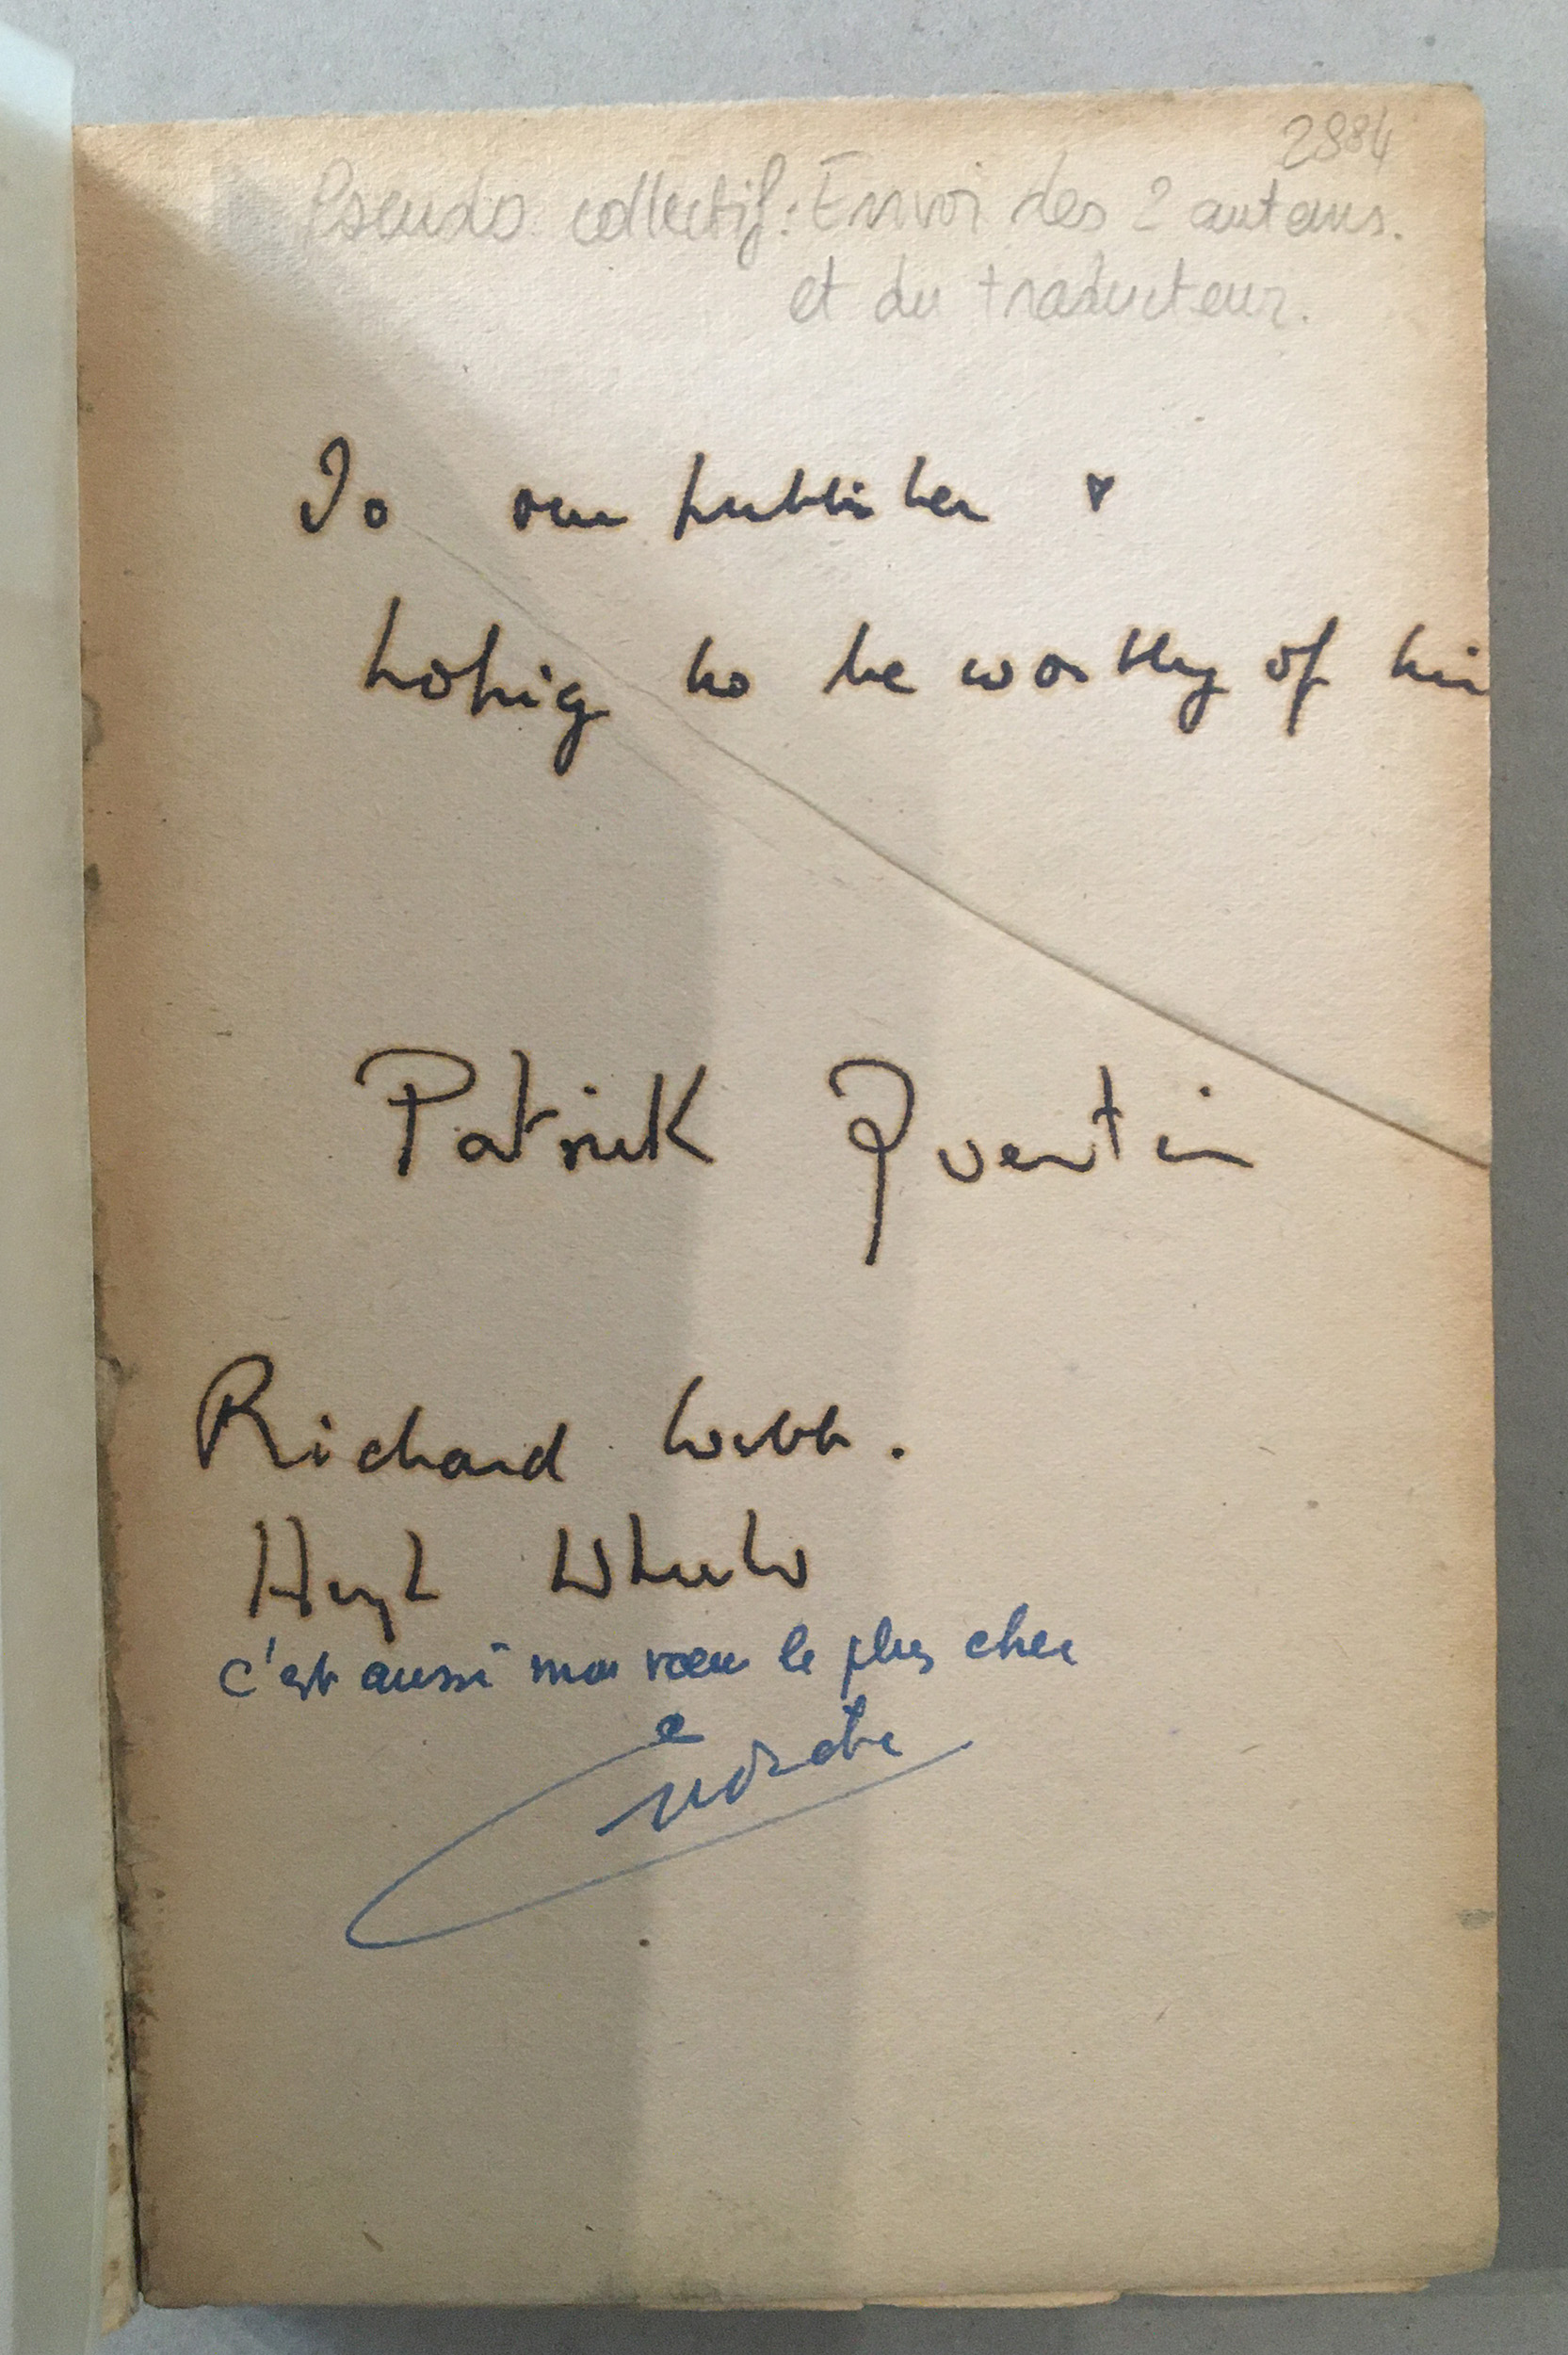 2884
Pseudo collectif: Envoi des 2 auteurs.
et du traducteur.
To our publisher &
hoping to be worthy of him
Patrick Quentin
Richard Webb.
Hugh Wheeler
c'est aussi mon vœu le plus cher